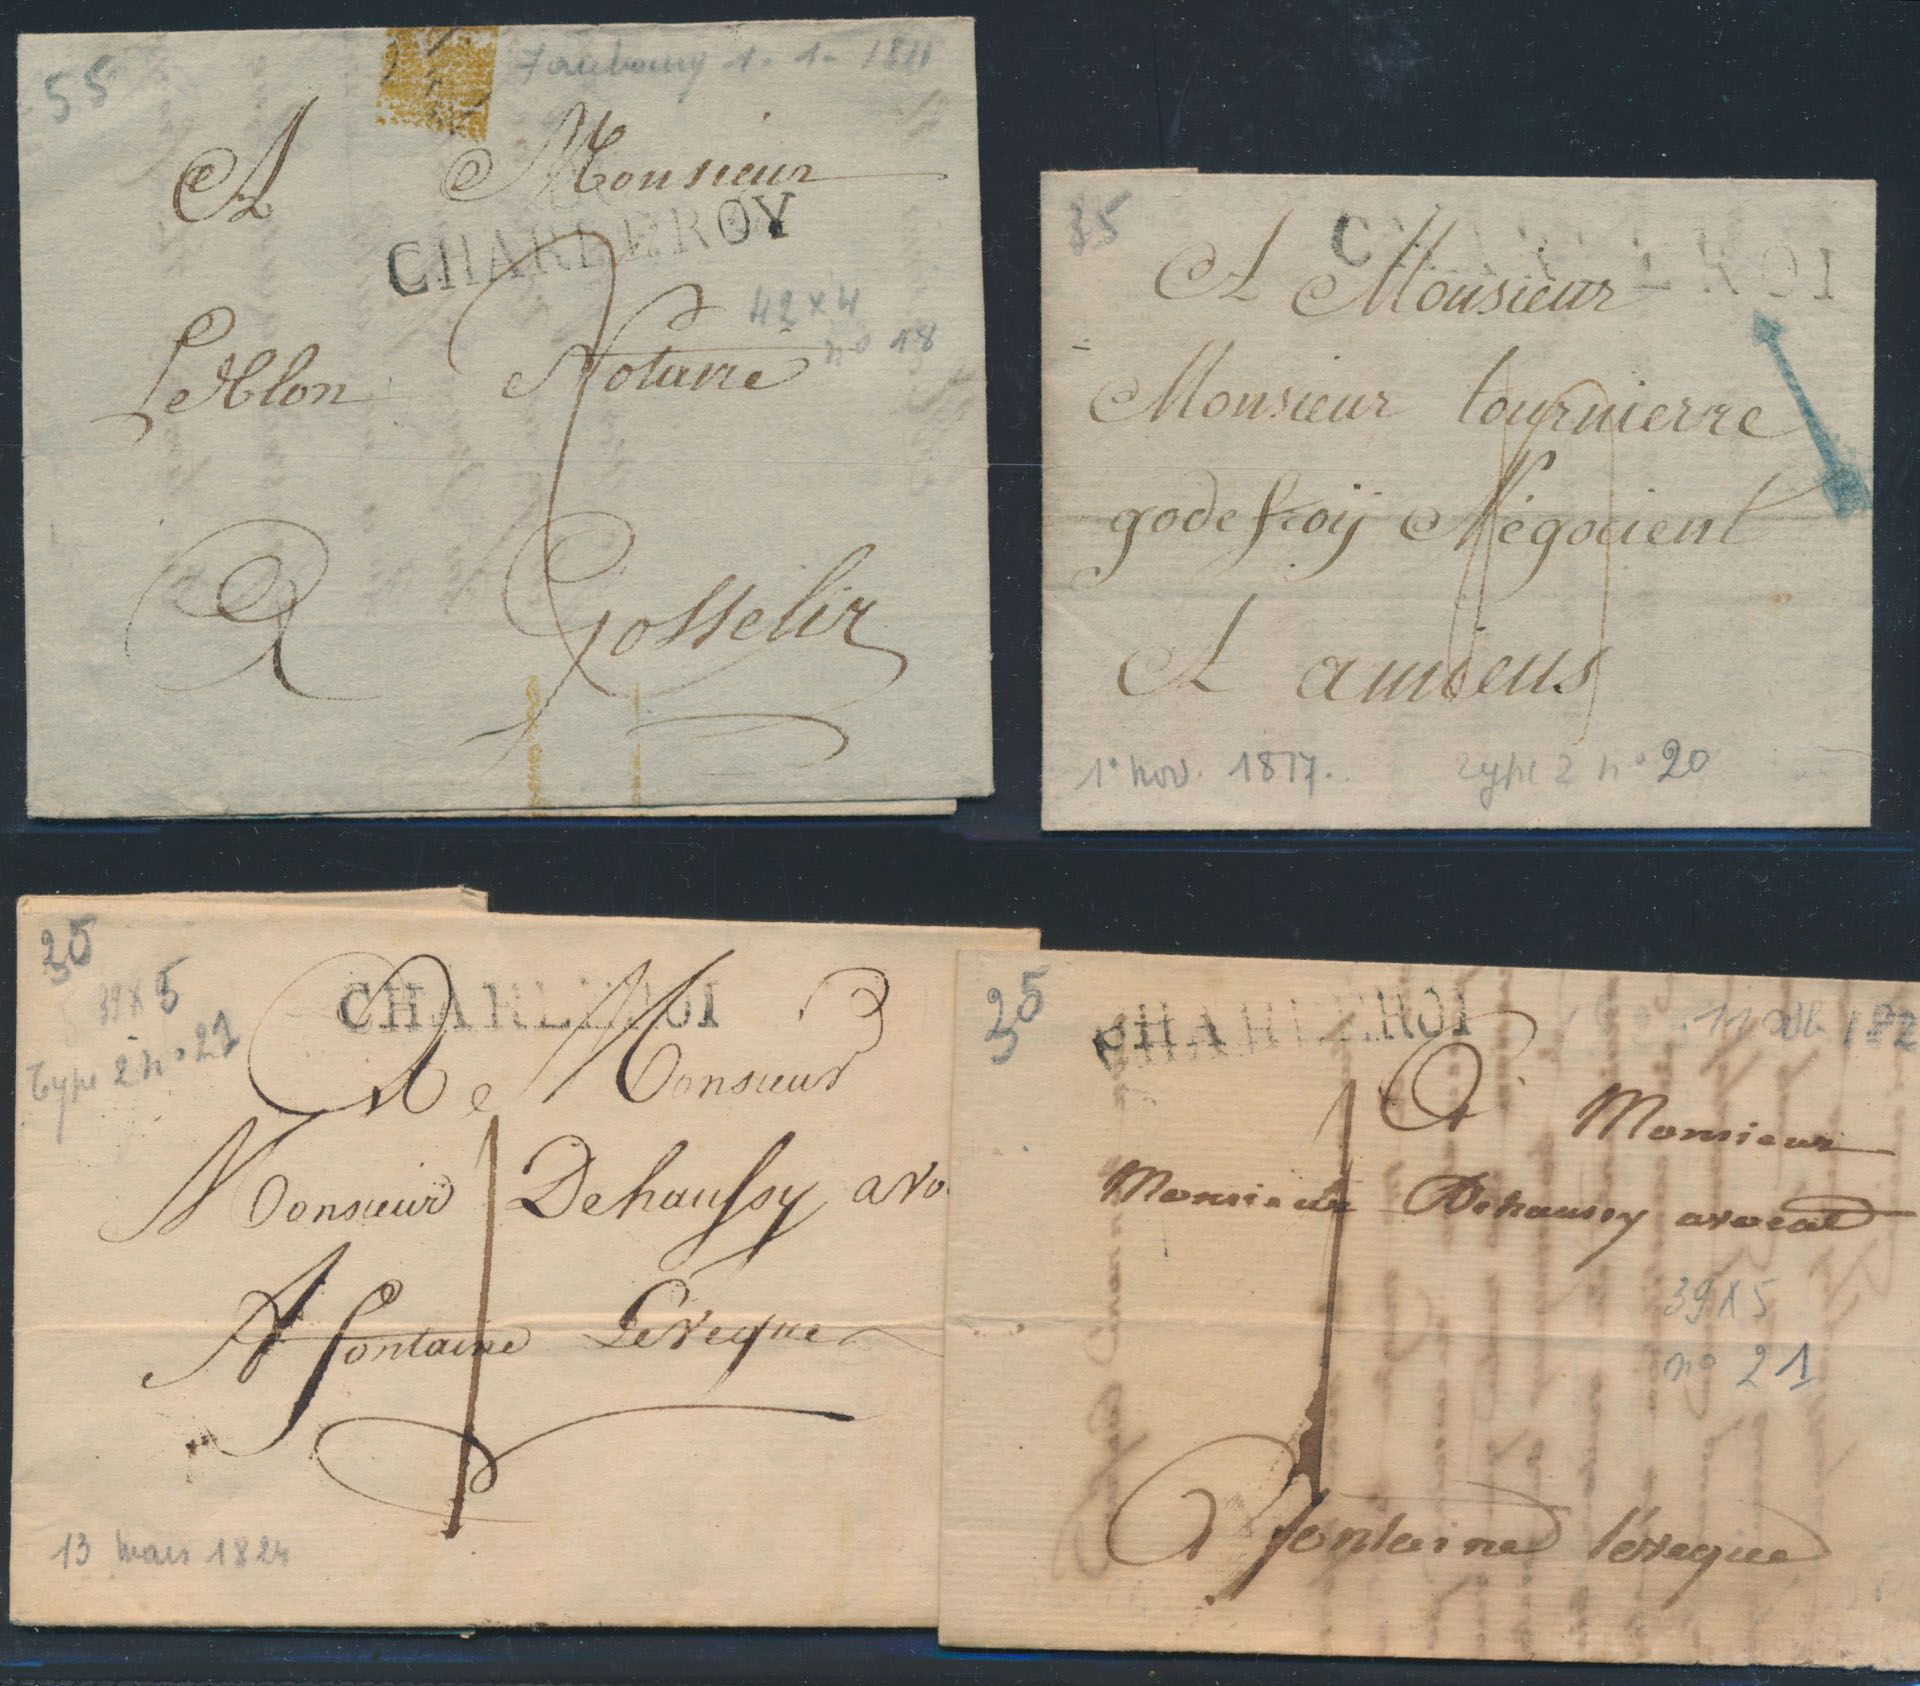 55
1. 1. 1811
A Monsieur
CHARLEROY
42 x 4
no 18
Leblon Notaire
2
A Gosselir
35
CHARLEROI
A Monsieur
Monsieur tournierre
godefroÿ Négocient
A amiens
1° nov. 1817.
type 2 n° 20
35
39 x 5
type 2 n° 21
CHARLEROI
A Monsieur
Monsieur Dehaussy avo
1
A fontaine Leveque
13 mars 1824
35
CHARLEROI
A Monsieur
Monsieur Dehaussy avocat
1
39 x 5
no 21
A fontaine l'éveque